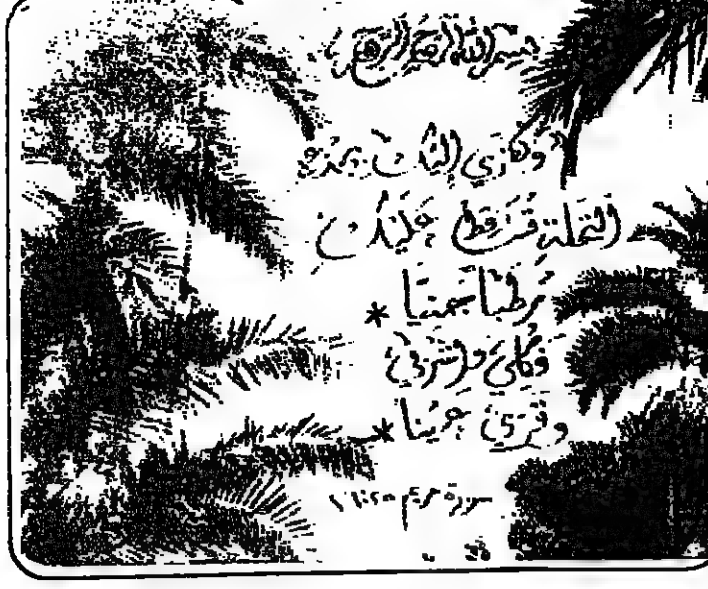 بسم الله الرحمن الرحيم
"وهزي إليك بجذع
النخلة تساقط عليك
رطبا جنيا *
فكلي واشربي
وقري عينا *
سورة مريم ٢٥:٢٦